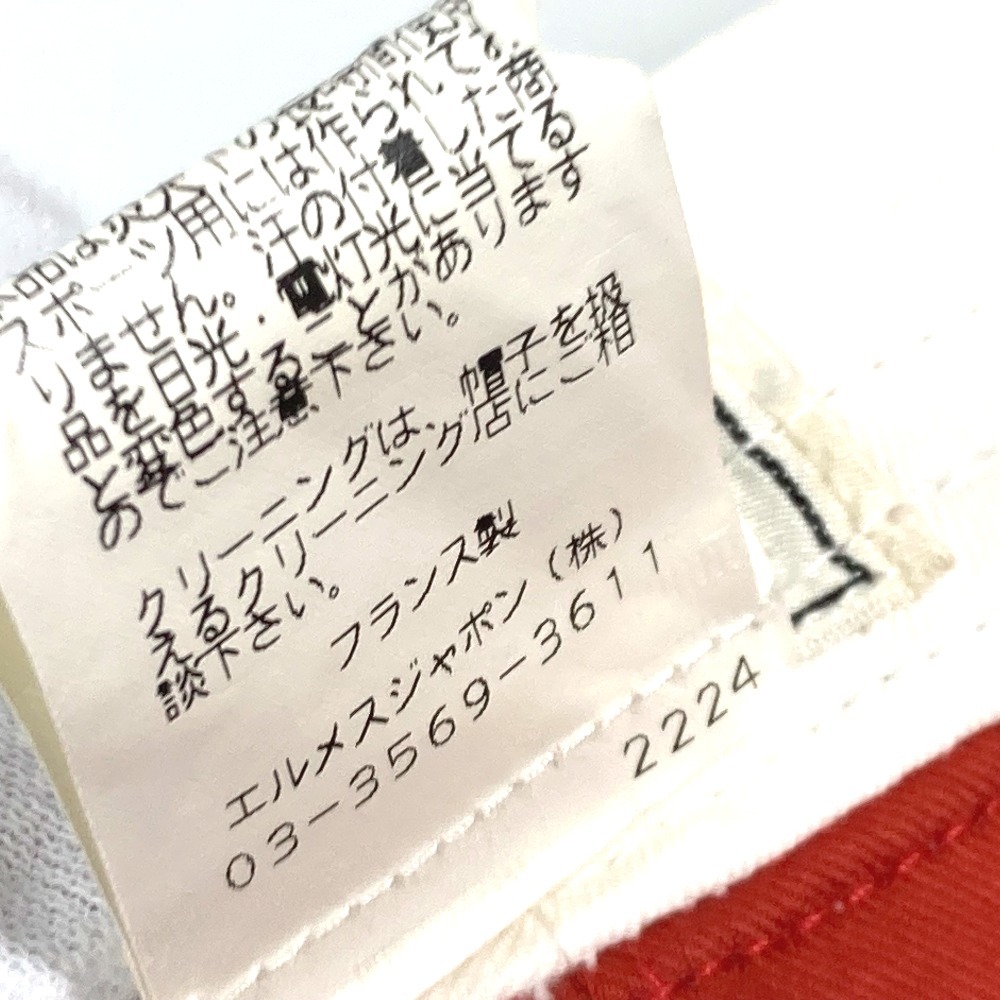 スポーツ用には作られて
りません。汗の付着した商
品を日光・電灯光に当てる
と変色することがあります
のでご注意下さい。
クリーニングは、帽子を扱
えるクリーニング店にご相
談下さい。
フランス製
エルメスジャポン（株）
03-3569-3611
2224